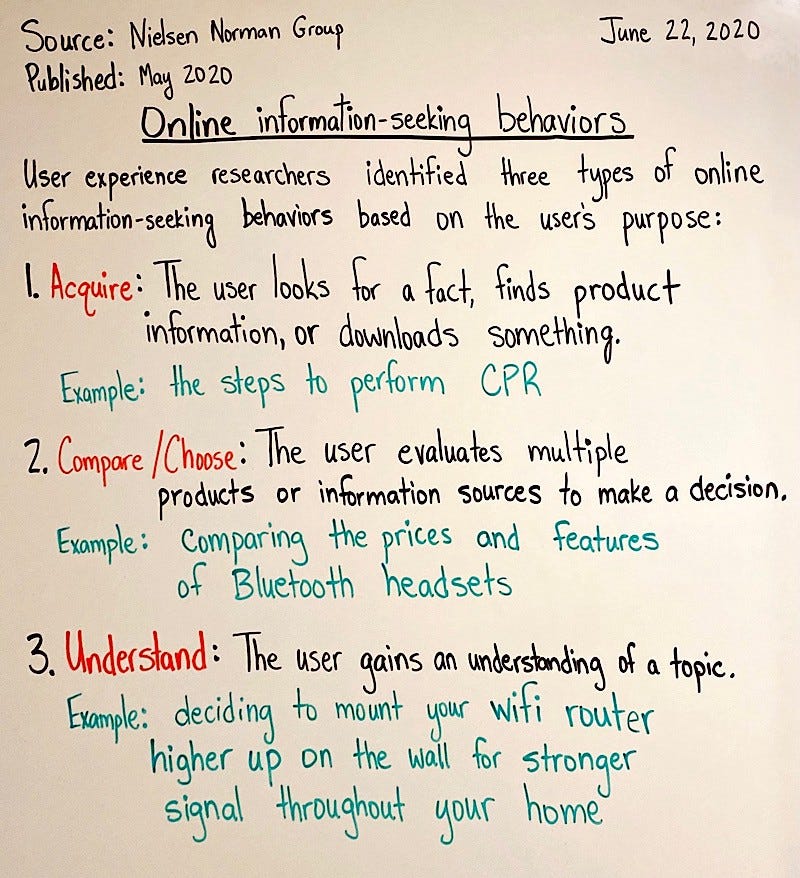 Source: Nielsen Norman Group
June 22, 2020
Published: May 2020
Online information-seeking behaviors
User experience researchers identified three types of online
information-seeking behaviors based on the user's purpose:
1. Acquire: The user looks for a fact, finds product
information, or downloads something.
Example: the steps to perform CPR
2. Compare/Choose: The user evaluates multiple
products or information sources to make a decision.
Example: Comparing the prices and features
of Bluetooth headsets
3. Understand: The user gains an understanding of a topic.
Example: deciding to mount your wifi router
higher up on the wall for stronger
signal throughout your home